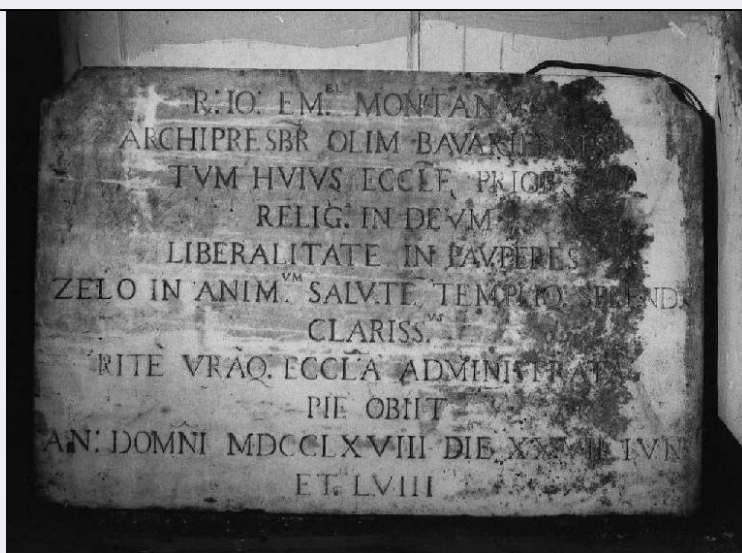 R: IO: EM.EL MONTANVS
ARCHIPRESBR OLIM BAVARIENSIS
TVM HVIVS ECCLE PRIOR
RELIG. IN DEVM
LIBERALITATE IN PAVPERES
ZELO IN ANIM.VM SALVTE TEMPLIQ. SPLEND
CLARISS.VS
RITE VRAQ. ECCLA ADMINISTRATA
PIE OBIIT
AN: DOMNI MDCCLXVIII DIE LVN
ET. LVIII